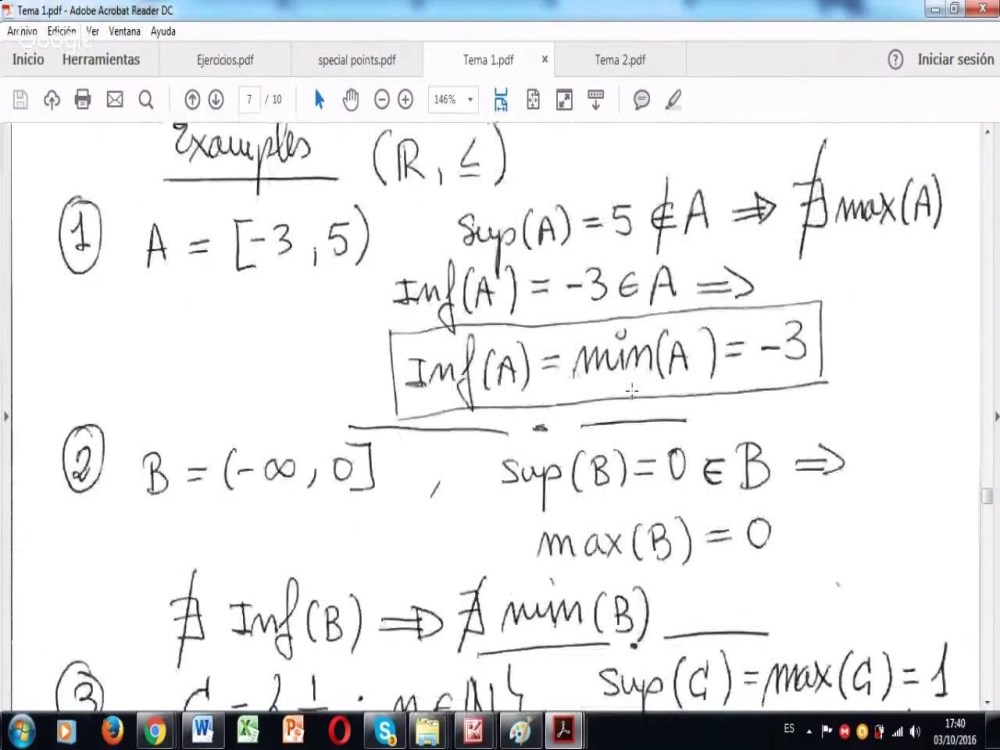 Tema 1.pdf - Adobe Acrobat Reader DC
Archivo Edición Ver Ventana Ayuda
Google
Inicio Herramientas Ejercicios.pdf special points.pdf Tema 1.pdf x Tema 2.pdf ? Iniciar sesión
7 / 10 146%
Examples (ℝ, ≤)
① A = [-3, 5) Sup(A) = 5 ∉ A ⇒ ∄ max(A)
Inf(A) = -3 ∈ A ⇒
Inf(A) = min(A) = -3
② B = (-∞, 0] , Sup(B) = 0 ∈ B ⇒
max(B) = 0
∄ Inf(B) ⇒ ∄ min(B)
Sup(C) = max(C) = 1
③
ES 17:40
03/10/2016